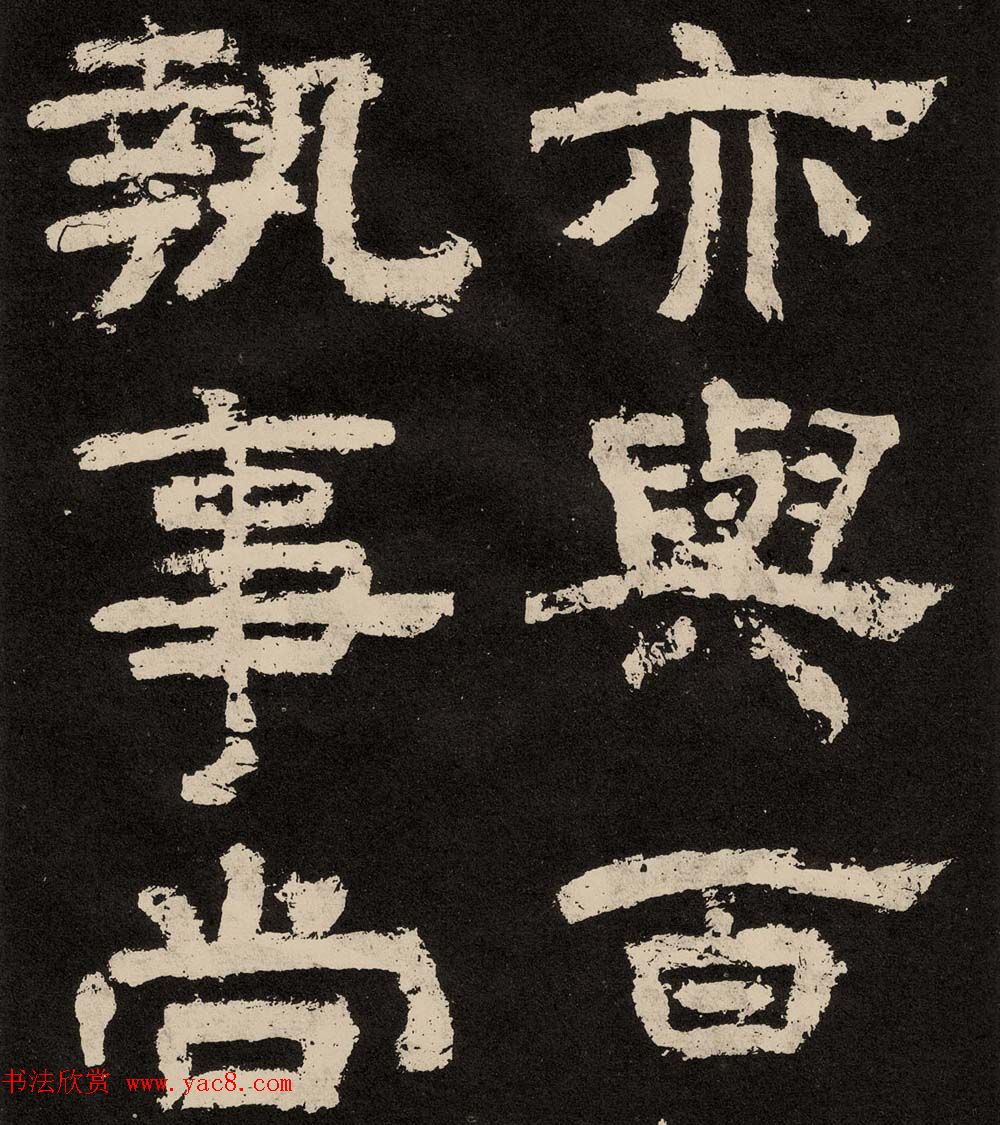 亦與百
執事尚
书法欣赏 www.yac8.com